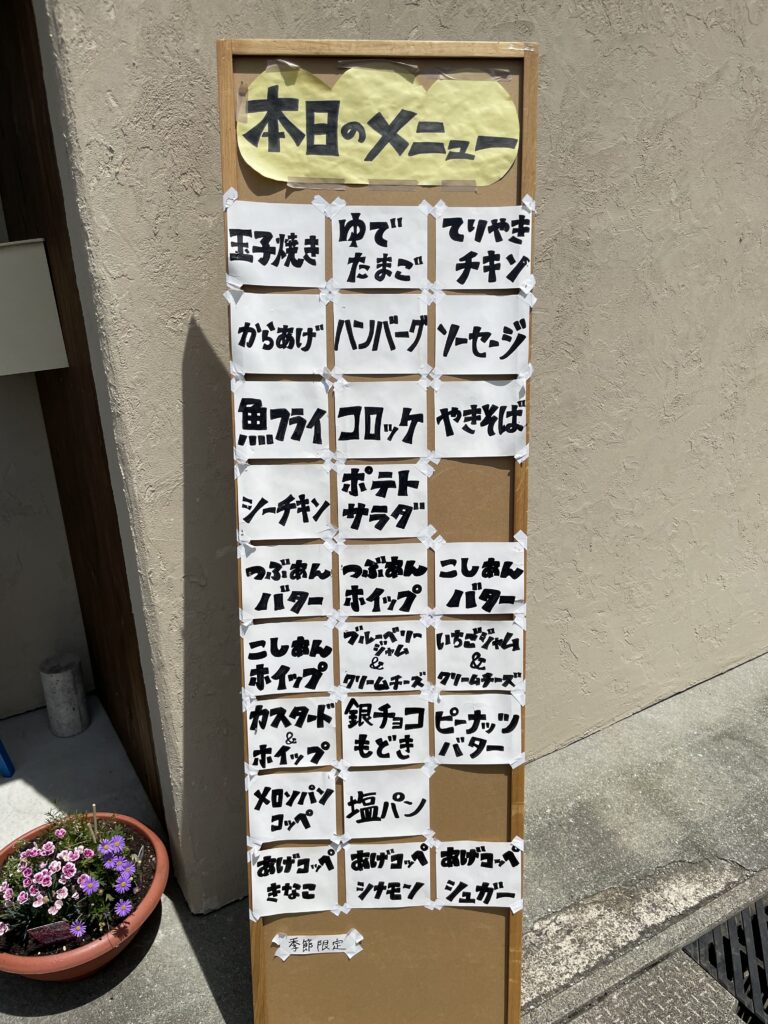 本日のメニュー
玉子焼き
ゆで
たまご
てりやき
チキン
からあげ
ハンバーグ
ソーセージ
魚フライ
コロッケ
やきそば
シーチキン
ポテト
サラダ
つぶあん
バター
つぶあん
ホイップ
こしあん
バター
こしあん
ホイップ
ブルーベリー
ジャム
&
クリームチーズ
いちごジャム
&
クリームチーズ
カスタード
&
ホイップ
銀チョコ
もどき
ピーナッツ
バター
メロンパン
コッペ
塩パン
あげコッペ
きなこ
あげコッペ
シナモン
あげコッペ
シュガー
季節限定